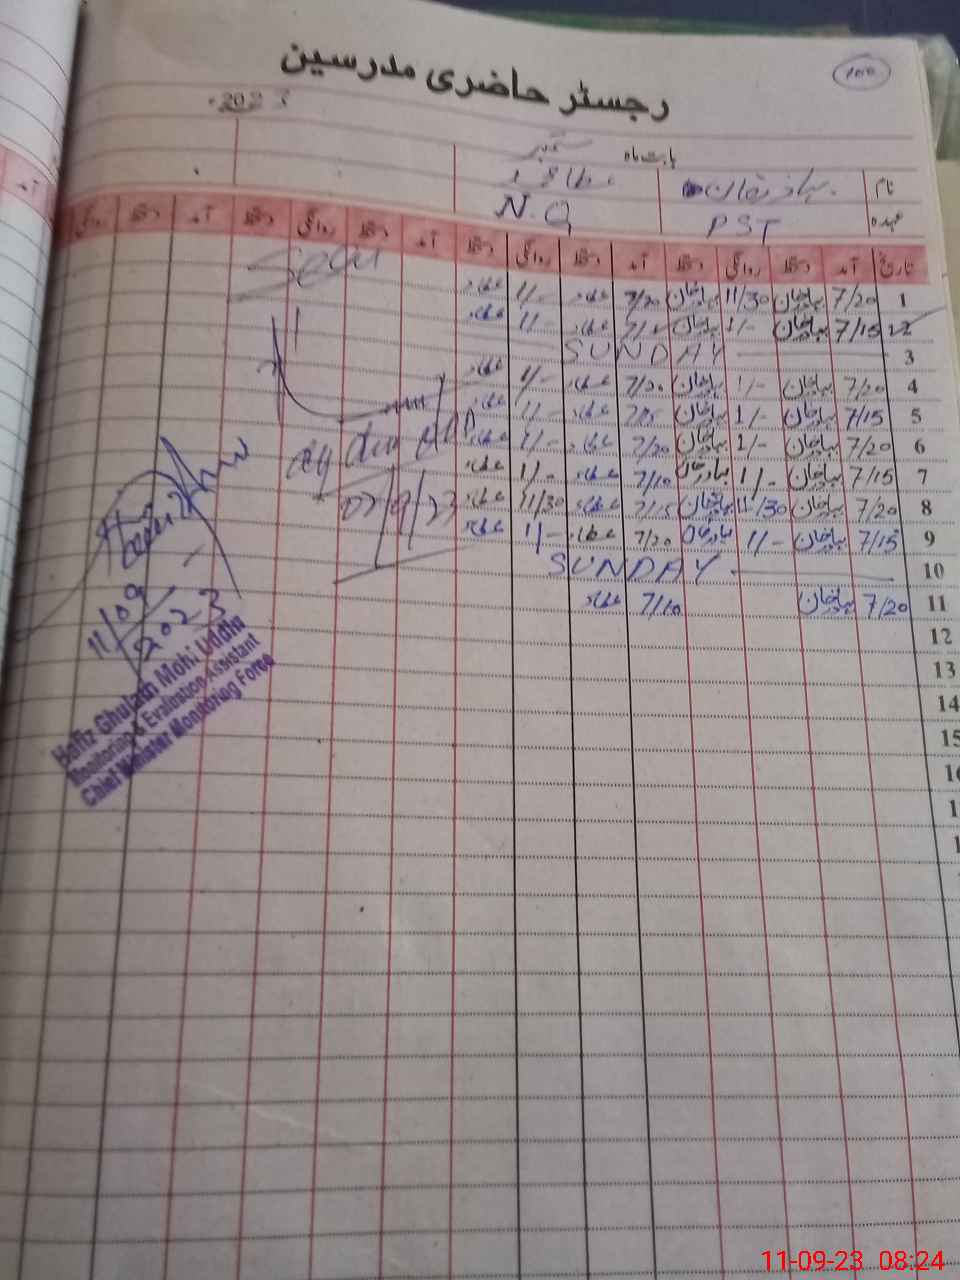 رجسٹر حاضری مدرسین
2023
بابت ماہ ستمبر
نام
عہدہ PST N.Q
تاریخ آمد دستخط روانگی دستخط آمد دستخط روانگی دستخط آمد دستخط روانگی دستخط آمد دستخط روانگی
1 7/20 بہادرخان 11/30 بہادرخان 7/20 عطاء 1/- عطاء
2 7/15 بہادرخان 1/- بہادرخان عطاء 1/- عطاء
3 SUNDAY
4 7/20 بہادرخان 1/- بہادرخان 7/20 عطاء 1/- عطاء
5 7/15 بہادرخان 1/- بہادرخان 7/15 عطاء 1/- عطاء
6 7/20 بہادرخان 1/- بہادرخان 7/20 عطاء 1/- عطاء
7 7/15 بہادرخان 1/- بہادرخان 7/10 عطاء 1/- عطاء
8 7/20 بہادرخان 11/30 بہادرخان 7/15 عطاء 11/30 عطاء
9 7/15 بہادرخان 1/- بہادرخان 7/20 عطاء 1/- عطاء
10 SUNDAY
11 7/20 بہادرخان 7/10 عطاء
12
13
14
15
Seen
07/9/23
11/09/2023
Hafiz Ghulam Mohi Uddin
Monitoring & Evaluation Assistant
Chief Minister Monitoring Force
11-09-23 08:24